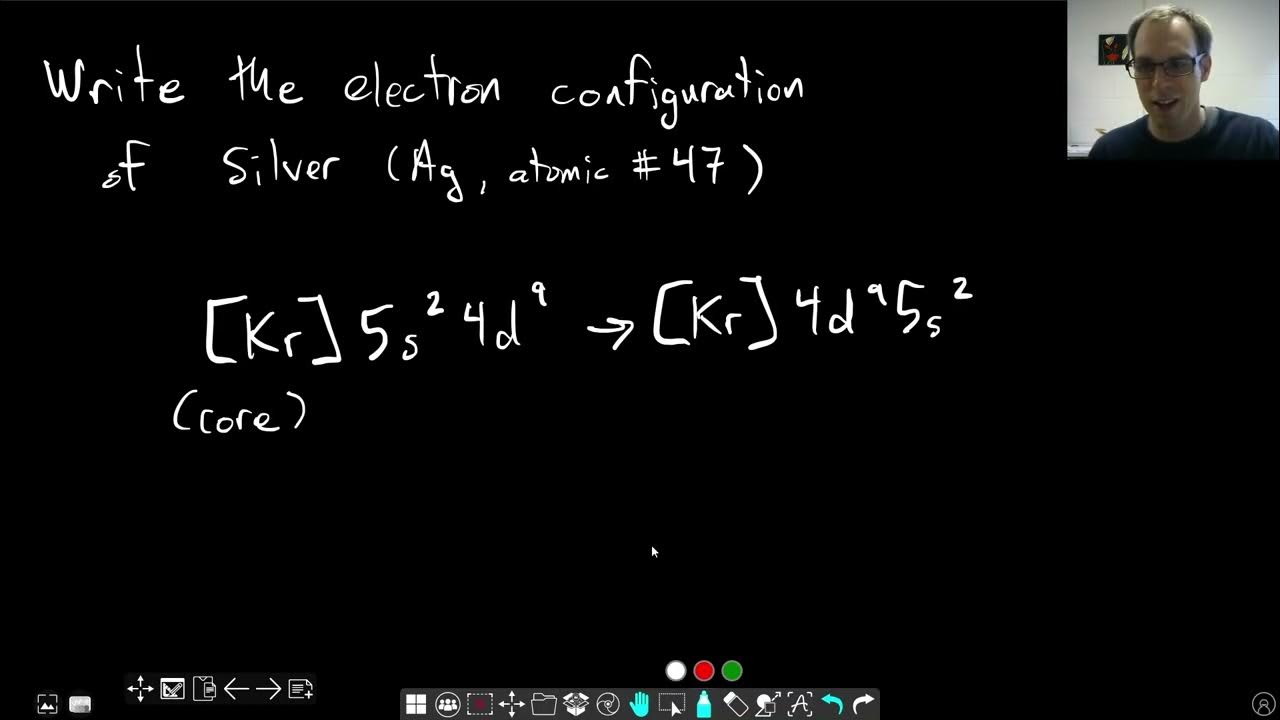 Write the electron configuration
of Silver (Ag, atomic # 47)
[Kr] 5s² 4d⁹ → [Kr] 4d⁹ 5s²
(core)